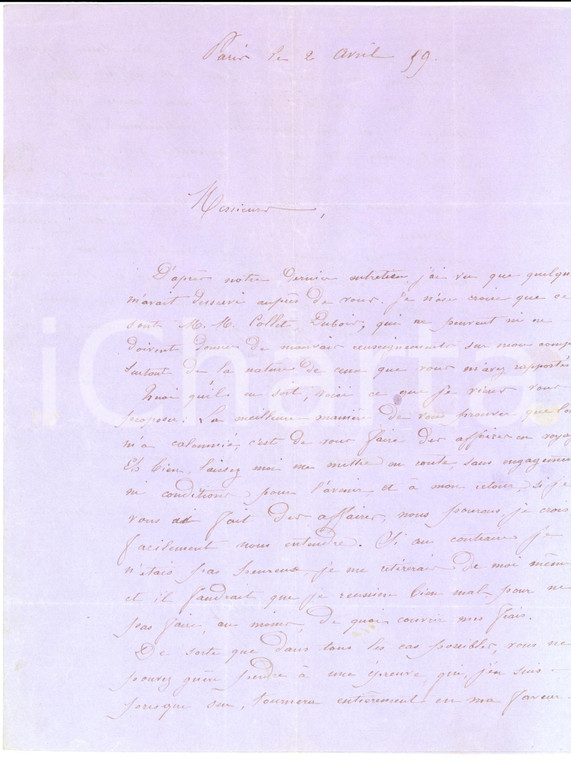 Paris le 2 Avril 59.
Messieurs,
D'après notre dernier entretien j'ai vu que quelqu
m'avait desservi auprès de vous. Je n'ose croire que ce
soit M. M. Collet, Dubois, qui ne peuvent ni ne
doivent donner de mauvais renseignements sur mon comp
surtout de la nature de ceux que vous m'avez rapportés
Quoi qu'il en soit, voici ce que je viens vous
proposer. La meilleure manière de vous prouver que l'o
m'a calomnié, c'est de vous faire des affaires en voya
Eh bien, laissez moi me mettre en route, sans engagement
ni conditions pour l'avenir, et à mon retour, si je
vous ai fait des affaires, nous pourrons, je crois
facilement nous entendre. Si au contraire je
n'étais pas heureux, je me retirerais de moi même
et il faudrait que je réussisse bien mal, pour ne
pas faire, au moins, de quoi couvrir mes frais.
De sorte que dans tous les cas possibles, vous ne
pouvez guère perdre à une épreuve qui, j'en suis
presque sûr, tournera entièrement en ma faveur.
iCharta